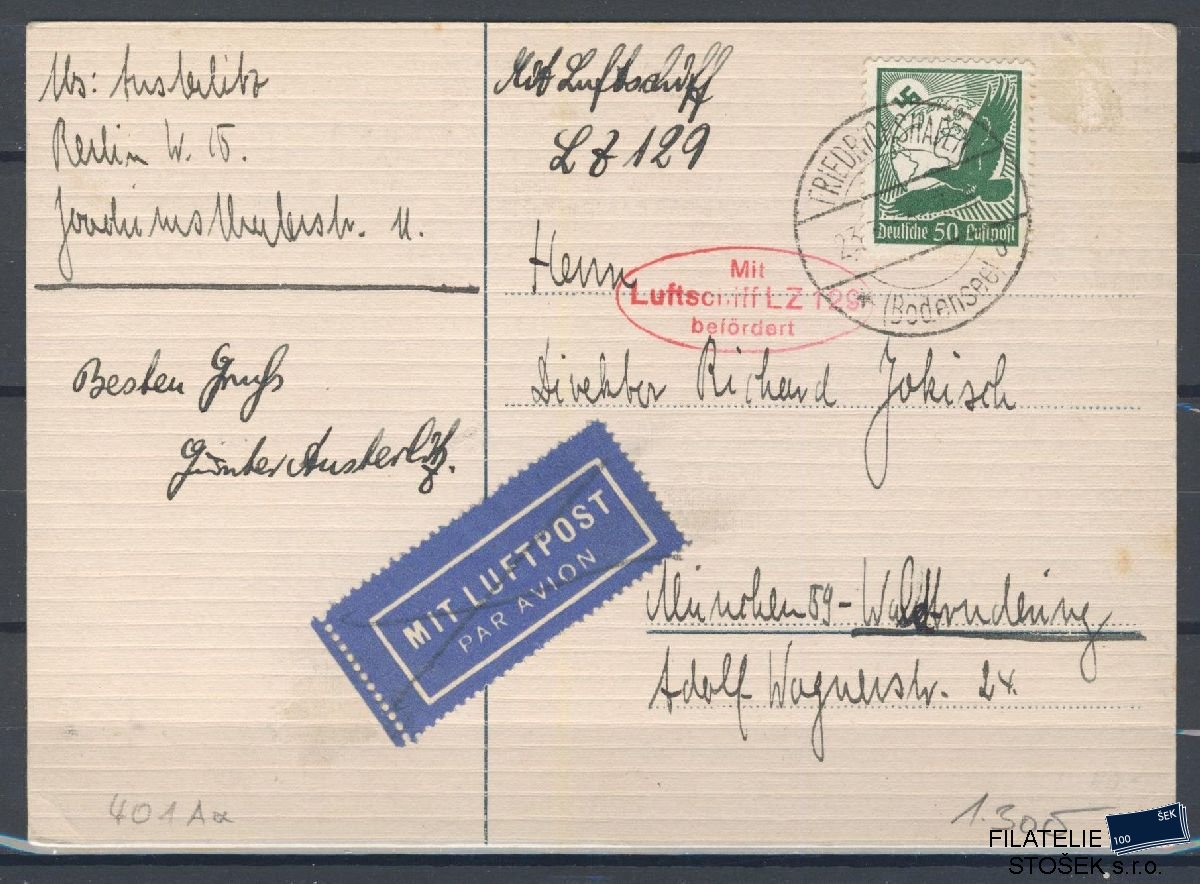 Abs: Austerlitz
Berlin W. 15.
Joachimsthalerstr. 11.
Besten Gruß
Günter Austerlitz.
Mit Luftschiff
LZ 129
Deutsche 50 Luftpost
FRIEDRICHSHAFEN
23.
* (Bodensee)
Mit
Luftschiff LZ 129
befördert
Herrn
Direktor Richard Jokisch
MIT LUFTPOST
PAR AVION
München 59 - Waldtrudering
Adolf Wagnerstr. 24.
401Aa
1.300
FILATELIE
STOŠEK s.r.o.
100 ŠEK